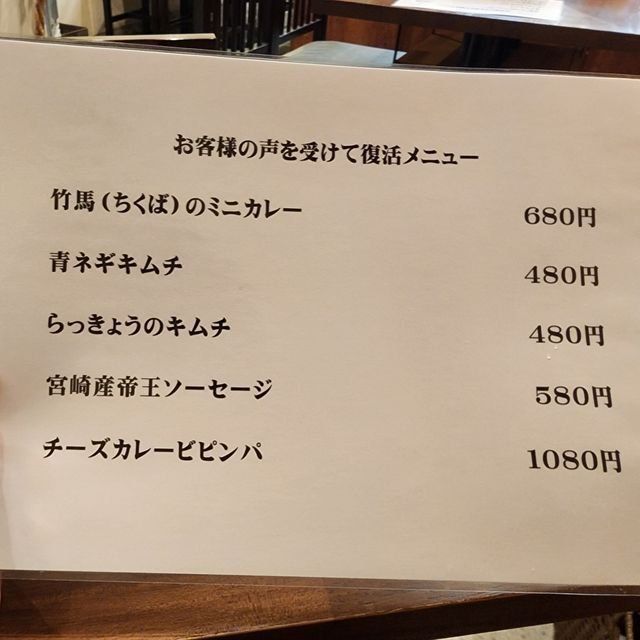 お客様の声を受けて復活メニュー
竹馬(ちくば)のミニカレー 680円
青ネギキムチ 480円
らっきょうのキムチ 480円
宮崎産帝王ソーセージ 580円
チーズカレービビンバ 1080円